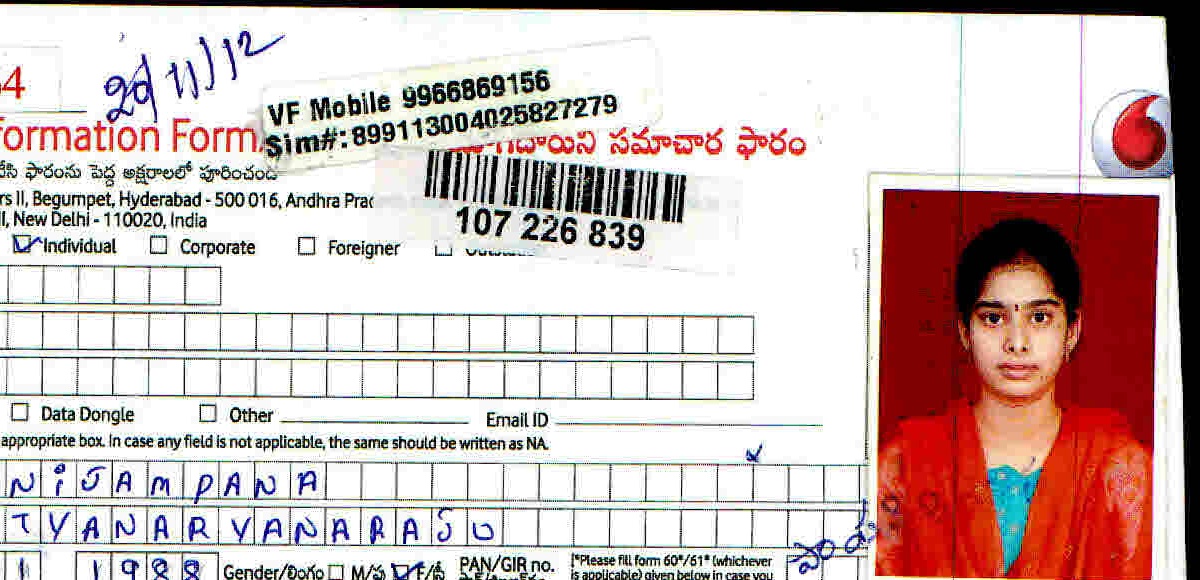 4 20/11/12
VF Mobile 9966869156
Sim#: 899113004025827279
formation Form సమాచార ఫారం
ఫారంను పెద్ద అక్షరాలలో పూరించండి
107 226 839
rs II, Begumpet, Hyderabad - 500 016, Andhra Prad
I, New Delhi - 110020, India
Individual Corporate Foreigner
Data Dongle Other Email ID
appropriate box. In case any field is not applicable, the same should be written as NA.
NIJAMPANA
TYANARYANARAJU
1 1988 Gender/లింగం M/పు F/స్త్రీ PAN/GIR no. *Please fill form 60*/61* (whichever
is applicable) given below in case you